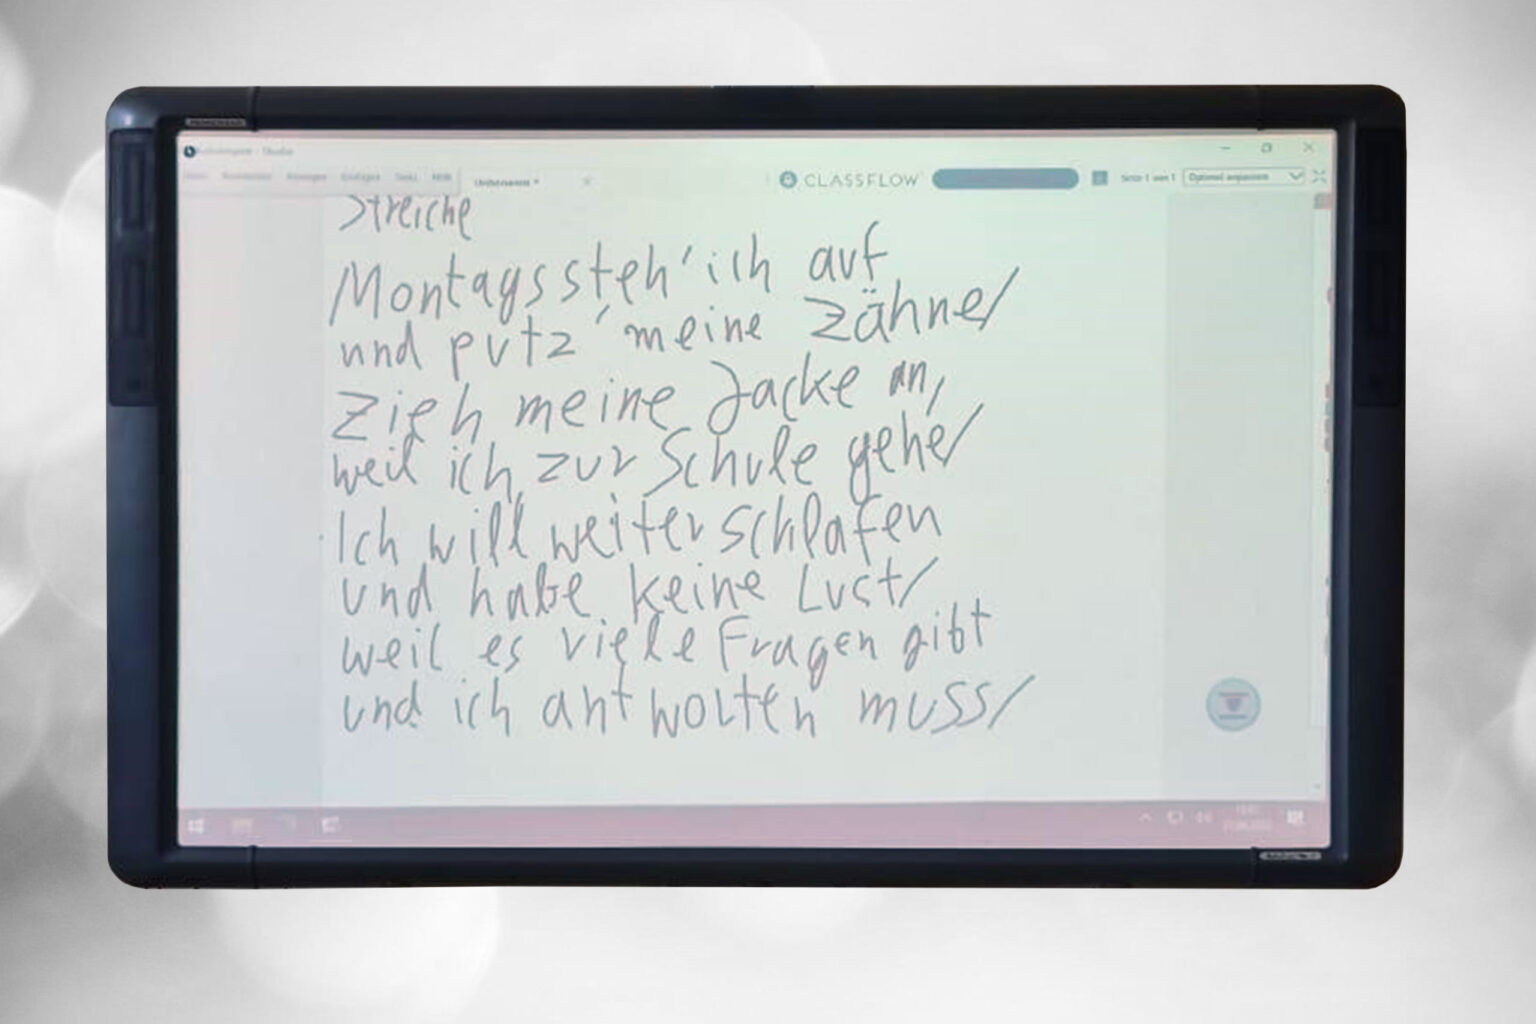 CLASSFLOW
Unbenannt *
Seite 1 von 1
Optimal anpassen
Streiche
Montags steh' ich auf
und putz' meine Zähne/
Zieh meine Jacke an,
weil ich zur Schule gehe/
Ich will weiter schlafen
und habe keine Lust/
weil es viele Fragen gibt
und ich antworten muss/